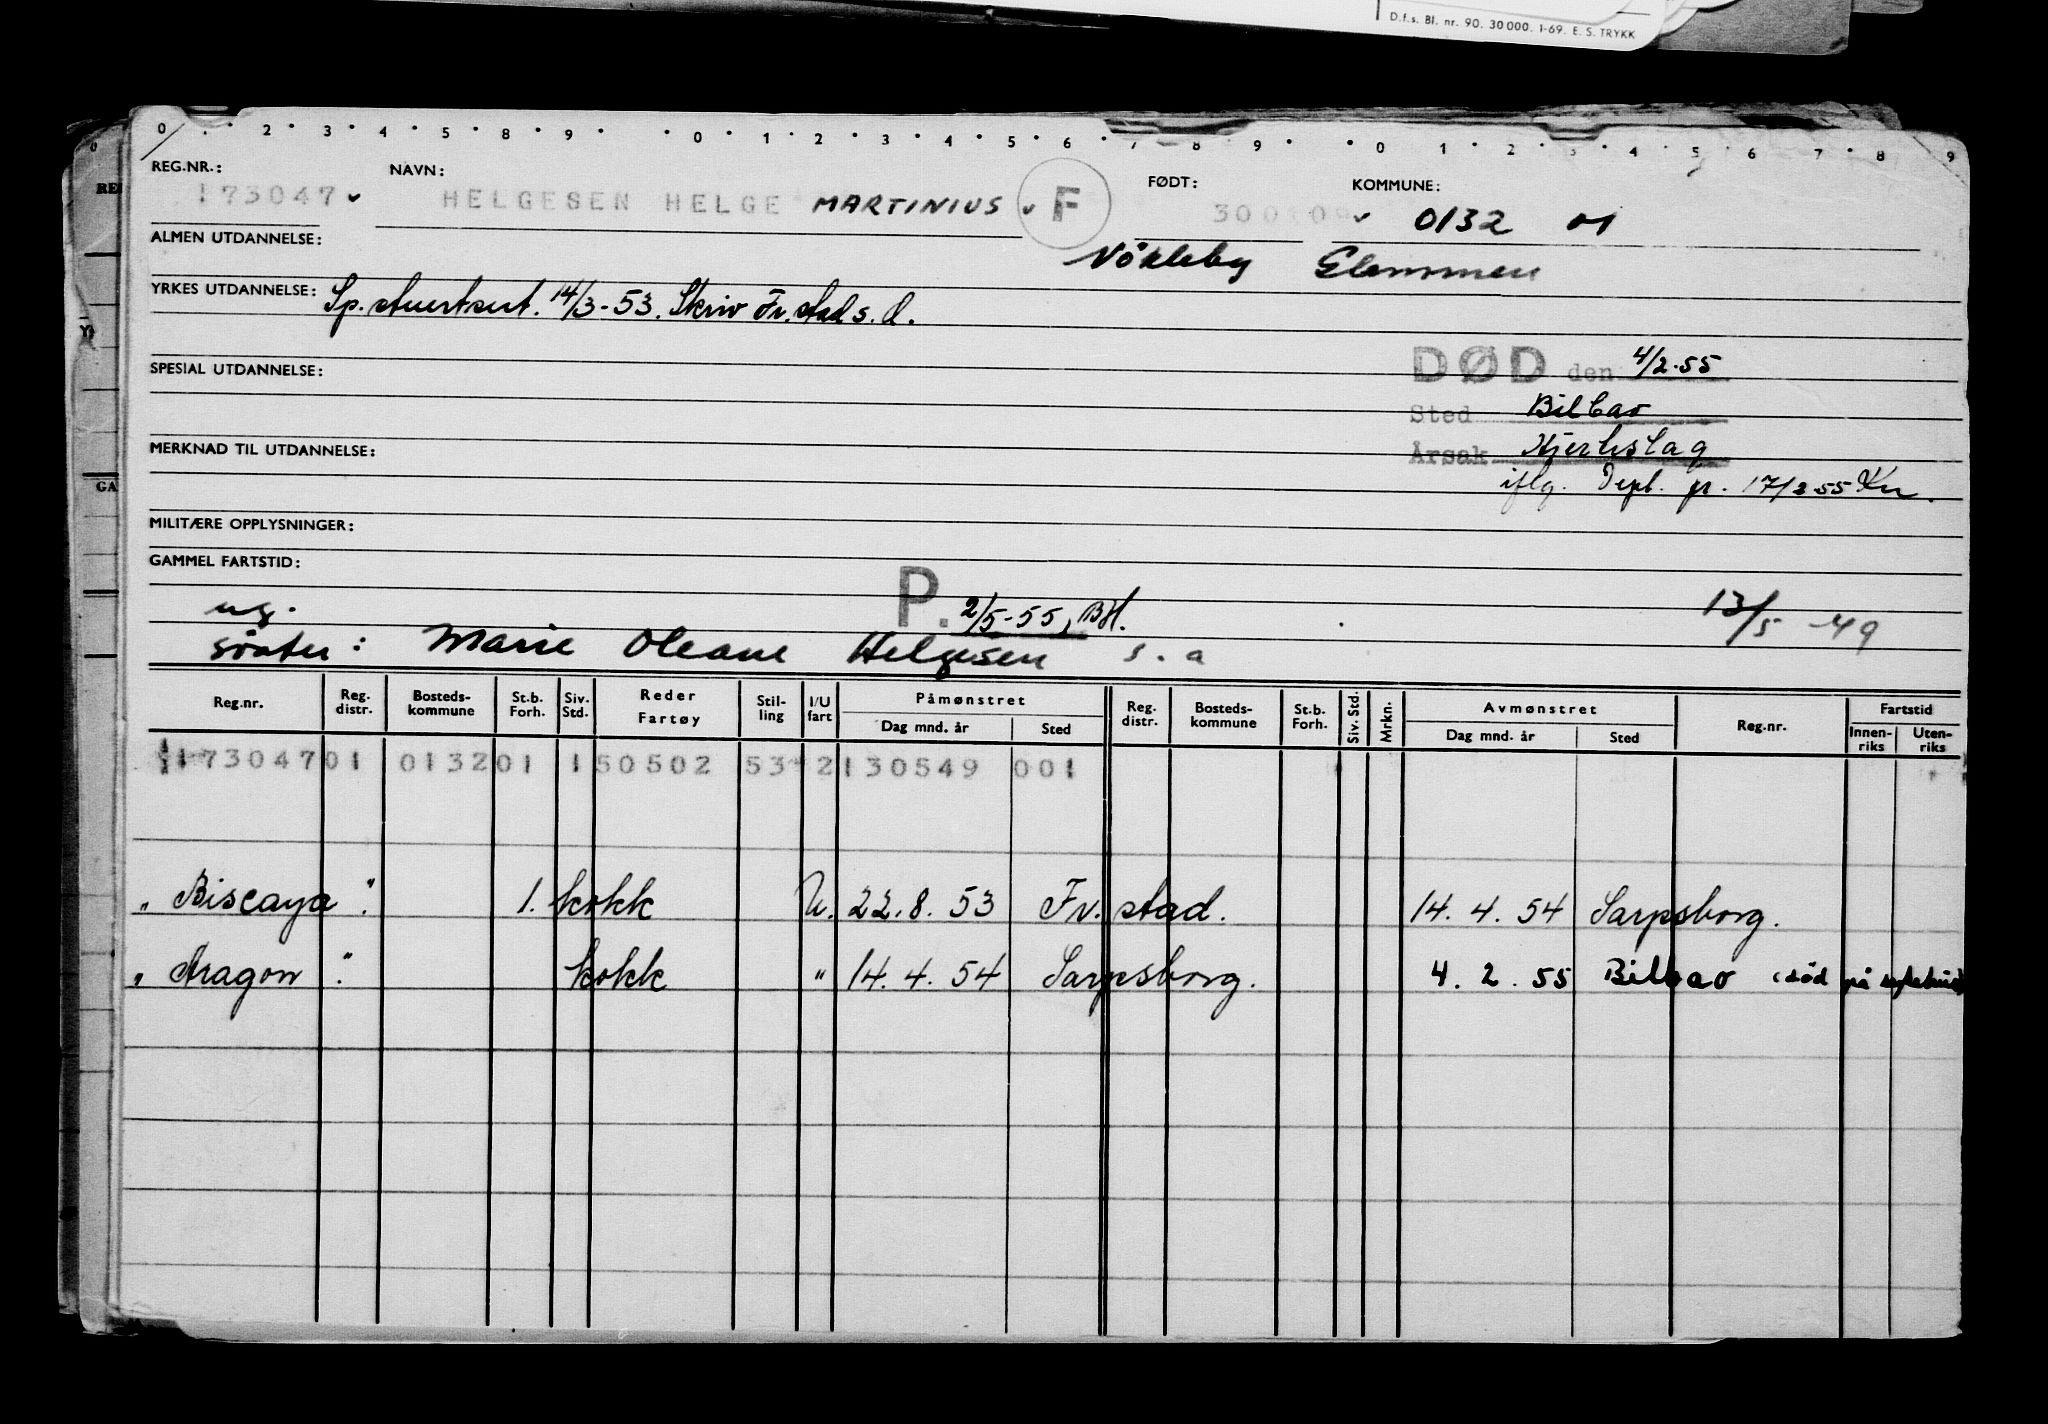 D.f.s. Bl. nr. 90. 30 000. 1-69. E. S. TRYKK
0 · 2 · 3 · 4 · 5 · 8 · 9 · 0 · 1 2 3 4 5 6 7 8 9 · 0 · 1 · 2 · 3 · 4 5 6 7 8 9
REG.NR.: NAVN: FØDT: KOMMUNE:
173047 HELGESEN HELGE MARTINIUS F 0132 01
ALMEN UTDANNELSE: Nökleby Glemmen
YRKES UTDANNELSE: Sp. stuertsert. 14/3-53. Skriv Fr.stad s.d.
DØD den 4/2-55
SPESIAL UTDANNELSE:
Sted Bilbao
MERKNAD TIL UTDANNELSE: Årsak Hjerteslag
iflg. Dept. pr. 17/2-55
MILITÆRE OPPLYSNINGER:
GAMMEL FARTSTID:
ug. P. 2/5-55, BH. 13/5 -49
söster: Marie Oleane Helgesen s.a
Reg.nr. Reg. distr. Bosteds-kommune St.b. Forh. Siv. Std. Reder Fartøy Stil-ling I/U fart Påmønstret Reg. distr. Bosteds-kommune St.b. Forh. Siv. Std. Mrkn. Avmønstret Reg.nr. Fartstid
Dag mnd. år Sted Dag mnd. år Sted Innen-riks Uten-riks
173047 01 0132 01 1 50502 53 2 130549 001
„Biscaya". 1. kokk U. 22.8.53 Fr.stad. 14.4.54 Sarpsborg.
„Aragon". kokk " 14.4.54 Sarpsborg. 4.2.55 Bilbao (död på sykehus)